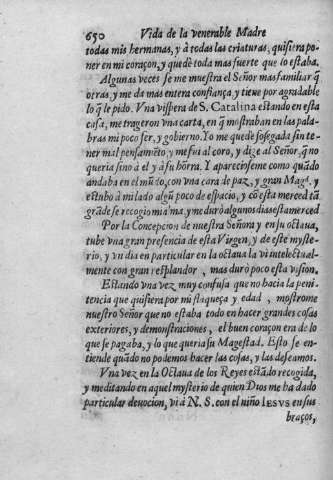 650 Vida de la venerable Madre
todas mis hermanas, y à todas las criaturas, quisiera po-
ner en mi coraçon, y quedè toda mas fuerte que lo estaba.
Algunas veces se me muestra el Señor mas familiar q̃
otras, y me da mas entera confiança, y tiene por agradable
lo q̃ le pido. Vna vispera de S. Catalina estando en esta
casa, me trageron vna carta, en q̃ mostraban en las pala-
bras mi poco ser, y gobierno. Yo me quedè sosegada sin te-
ner mal pensamiẽto, y me fui al coro, y dige al Señor, q̃ no
queria sino à el y à su honra. Y apareciòseme como quãdo
andaba en el mũdo, con vna cara de paz, y gran Magd. y
estubo à mi lado algũ poco de espacio, y cõ esta merced tã
grãde se recogio mi alma, y me durò algunos dias esta merced
Por la Concepcion de nuestra Señora y en su octaua,
tube vna gran presencia de esta Virgen, y de este myste-
rio, y vn dia en particular en la octaua la vi intelectual-
mente con gran resplandor, mas durò poco esta vision.
Estando vna vez muy confusa que no hacia la peni-
tencia que quisiera por mi flaqueça y edad, mostrome
nuestro Señor que no estaba todo en hacer grandes cosas
exteriores, y demonstraciones, el buen coraçon era de lo
que se pagaba, y lo que queria su Magestad. Esto se en-
tiende quãdo no podemos hacer las cosas, y las deseamos.
Vna vez en la Octaua de los Reyes estãdo recogida,
y meditando en aquel mysterio de quien Dios me ha dado
particular deuocion, vi à N. S. con el niño IESVS en sus
braços,